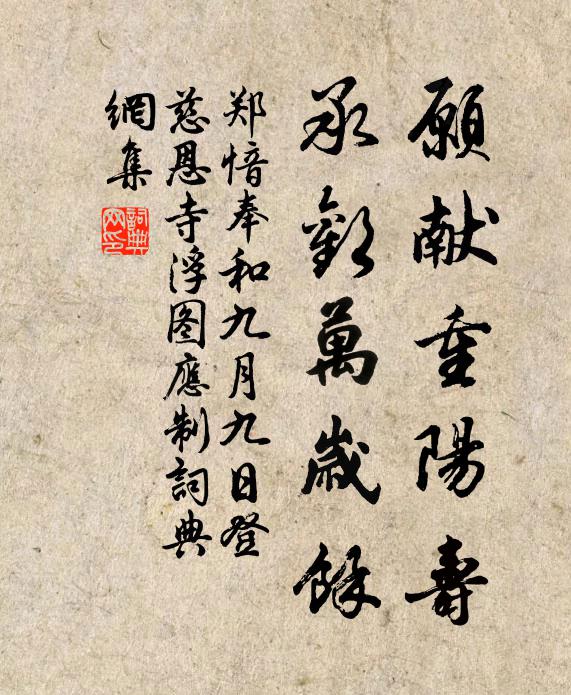 願献重陽壽
承歡萬歲餘
郑愔奉和九月九日登
慈恩寺浮图應制詞典
網集
詞典网印